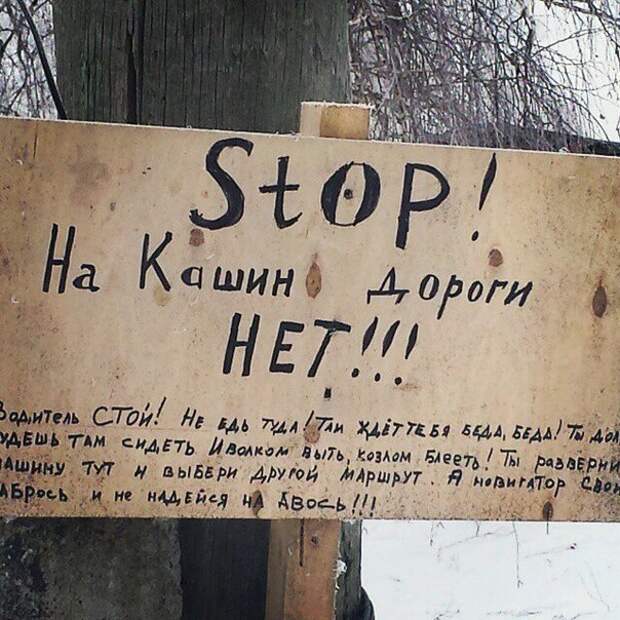 Stop!
На Кашин дороги
НЕТ!!!
Водитель СТОЙ! Не едь туда! Там ждёт тебя беда, беда! Ты
будешь там сидеть И волком выть, козлом блееть! Ты разверни
машину тут и выбери другой маршрут. А новигатор свой
забрось и не надейся на Авось!!!